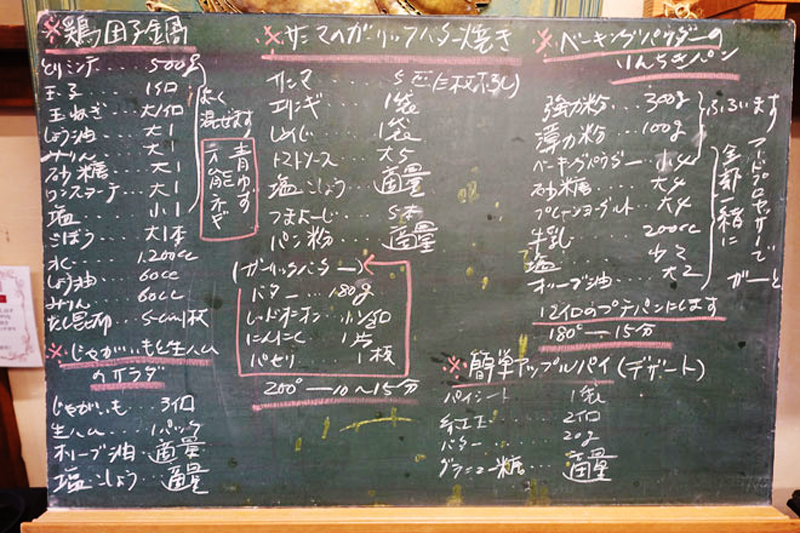 ※鶏団子鍋
とりミンチ…500g
玉子…1個
玉ねぎ…大1個
しょう油…大1
みりん…大1
砂糖…大1
塩…小1
よく
混ぜます
青ゆず
ごぼう…大1本
水…1,200cc
しょう油…60cc
みりん…60cc
だし昆布…5cm1枚
※じゃがいもと生ハム
サラダ
じゃがいも…3個
生ハム…1パック
オリーブ油…適量
塩こしょう…適量
※サンマのガーリックバター焼き
サンマ…5匹(三枚おろし)
エリンギ…1袋
しめじ…1袋
トマトソース…大5
塩こしょう…適量
つまようじ…5本
パン粉…適量
(ガーリックバター)
バター…180g
レッドオニオン…小1/2個
にんにく…1片
パセリ…1枝
200°―10〜15分
※ベーキングパウダーの
りんちきパン
強力粉…300g
薄力粉…100g
ふるいます
ベーキングパウダー…小4
砂糖…大4
プレーンヨーグルト…大4
牛乳…200cc
塩…小1/2
オリーブ油…大2
フードプロセッサーで
全部一緒に
ガーッと
12個のプチパンにします
180°―15分
※簡単アップルパイ(デザート)
パイシート…1袋
紅玉…2個
バター…20g
グラニュー糖…適量